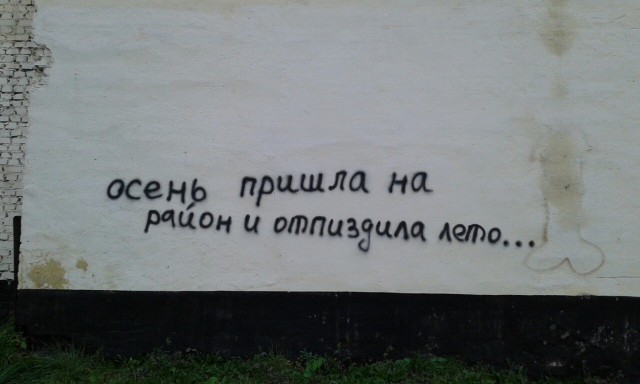 осень пришла на
район и отпиздила лето...